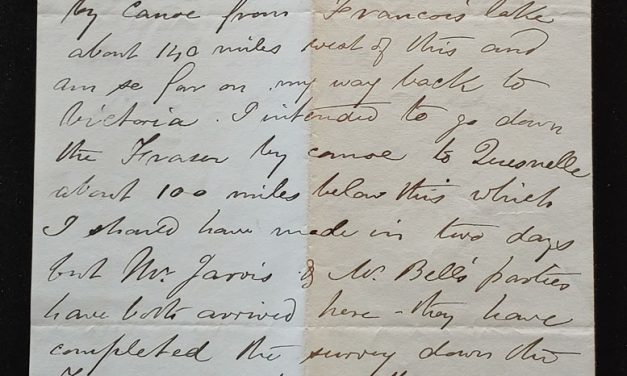 by Canoe from Francois lake
about 140 miles west of this and
am so far on my way back to
Victoria. I intended to go down
the Fraser by canoe to Quesnelle
about 100 miles below this which
I should have made in two days
but Mr. Jarvis & Mr. Bell's parties
have both arrived here - they have
completed the survey down the